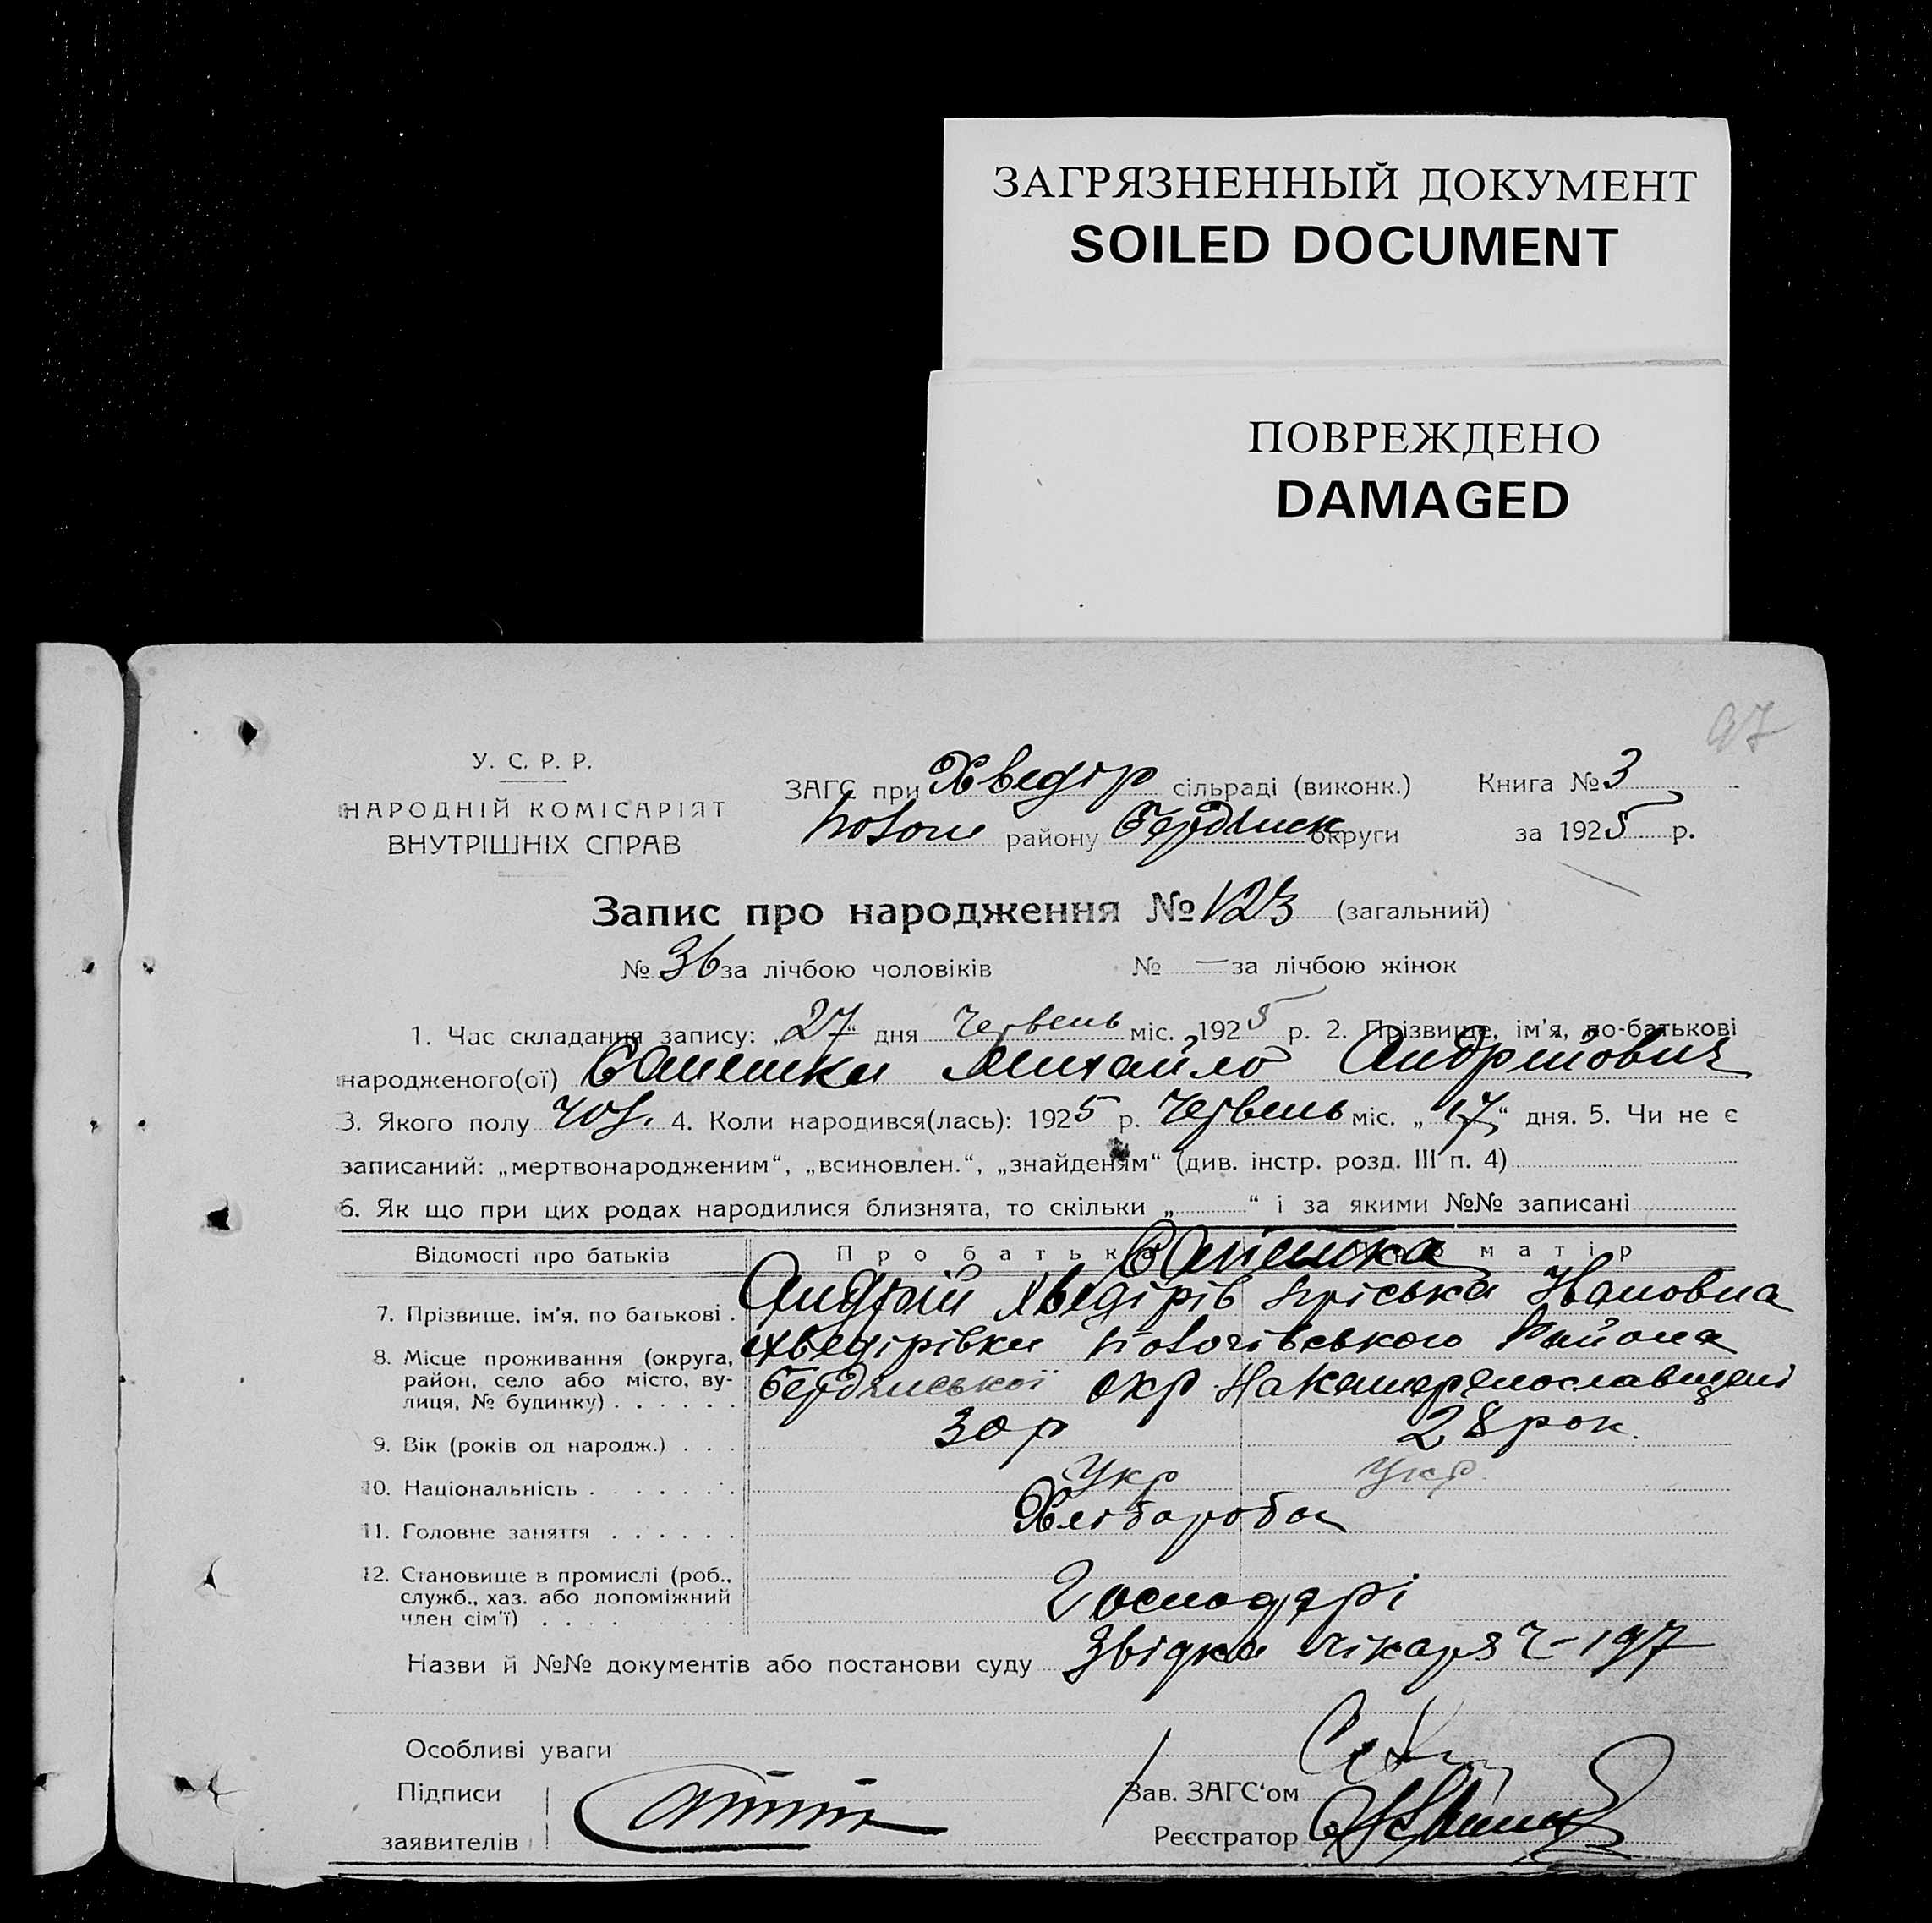 ЗАГРЯЗНЕННЫЙ ДОКУМЕНТ
SOILED DOCUMENT
ПОВРЕЖДЕНО
DAMAGED
97
У. С. Р. Р.
НАРОДНІЙ КОМІСАРІЯТ
ВНУТРІШНІХ СПРАВ
ЗАГС при Хведір сільраді (виконк.) Книга № 3
району Бердянск округи за 1925 р.
Запис про народження № 123 (загальний)
№ 36 за лічбою чоловіків № — за лічбою жінок
1. Час складання запису: „27“ дня Червень міс. 1925 р. 2. Прізвище, ім'я, по-батькові
народженого(ої) Михайло Андрійович
3. Якого полу чол. 4. Коли народився(лась): 1925 р. Червень міс. „17“ дня. 5. Чи не є
записаний: „мертвонародженим“, „всиновлен.“, „знайденям“ (див. інстр. розд. III п. 4)
6. Як що при цих родах народилися близнята, то скільки „ “ і за якими №№ записані
Відомості про батьків Про батька матір
7. Прізвище, ім'я, по батькові . Андрій Хведірів Пріська Івановна
8. Місце проживання (округа, Хведірівки Пологівського Района
район, село або місто, ву-
лиця, № будинку) . . . . . . Бердянської окр
9. Вік (років од народж.) . . . 30 р 28 рок.
10. Національність . . . . . . . Укр Укр.
11. Головне заняття . . . . . . Хлібароба
12. Становище в промислі (роб.,
служб., хаз. або допоміжний Господарі
член сім'ї) . . . . . . . .
Назви й №№ документів або постанови суду Звідка лікаря Ч–197
Особливі уваги
Підписи Зав. ЗАГС'ом
заявителів Реєстратор